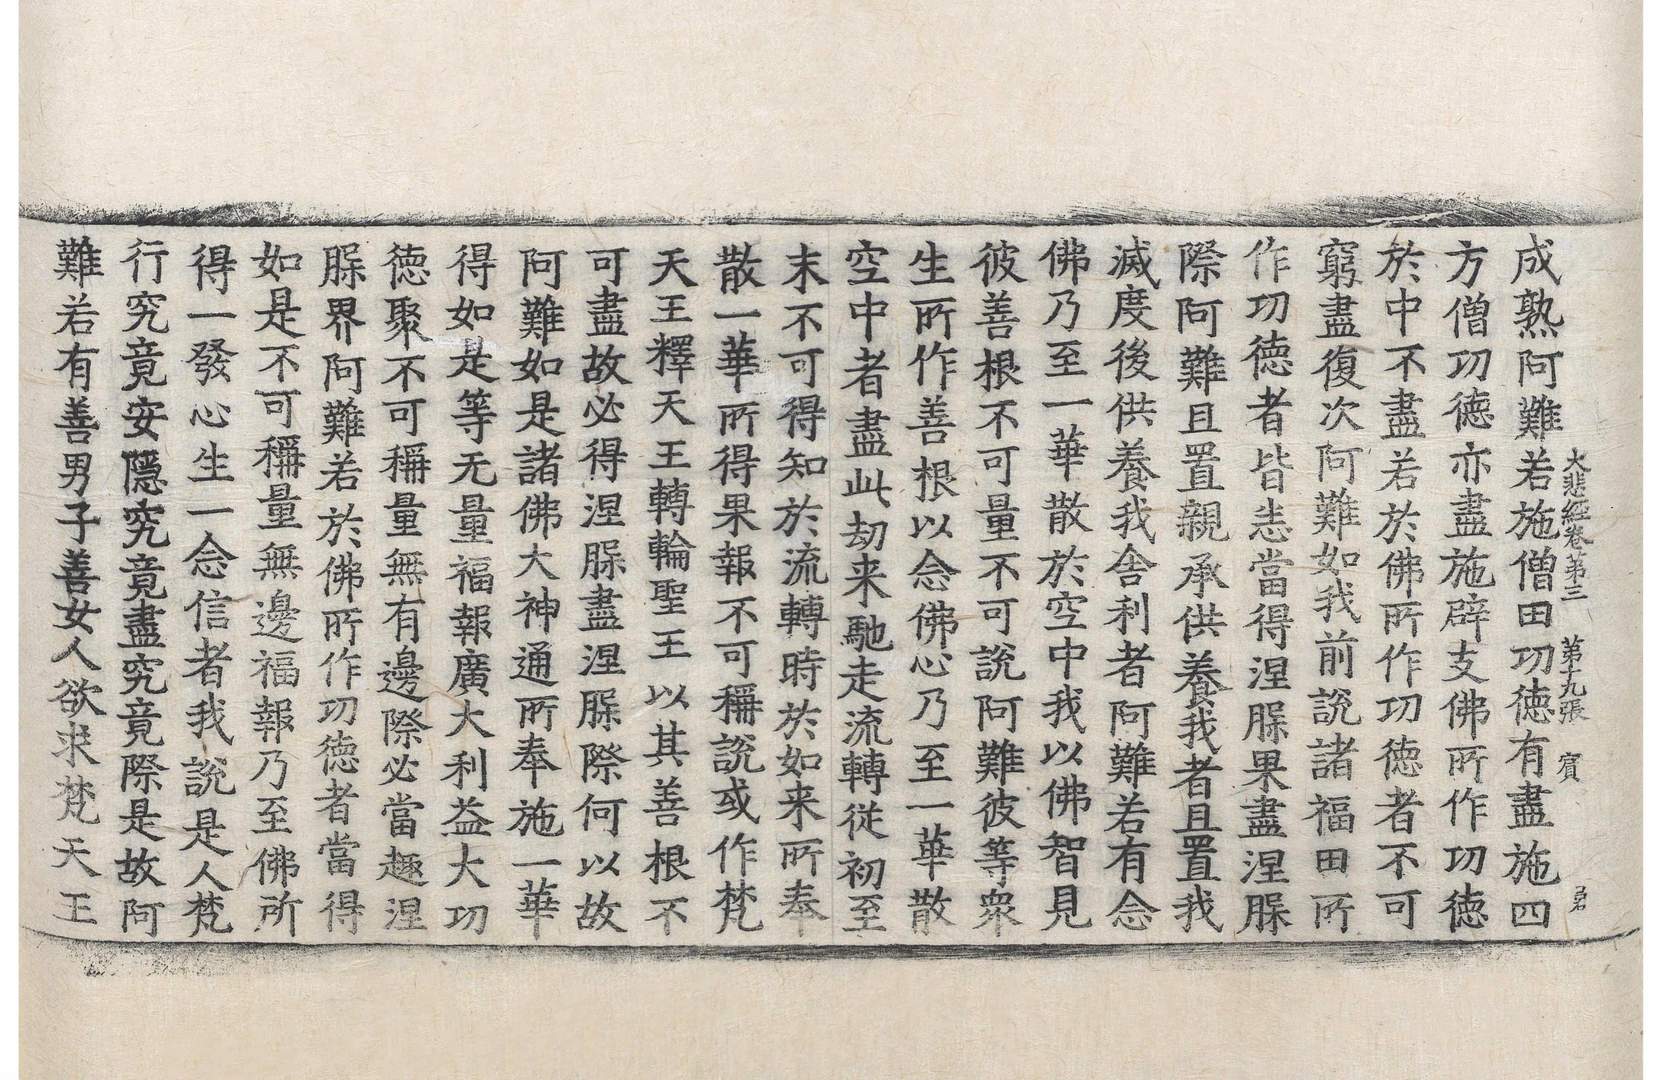 大悲經卷第三 第十九張 賓
成熟阿難若施僧田功德有盡施四
方僧功德亦盡施辟支佛所作功德
於中不盡若於佛所作功德者不可
窮盡復次阿難如我前說諸福田所
作功德者皆悉當得涅槃果盡涅槃
際阿難且置親承供養我者且置我
滅度後供養我舍利者阿難若有念
佛乃至一華散於空中我以佛智見
彼善根不可量不可說阿難彼等眾
生所作善根以念佛心乃至一華散
空中者盡此劫来馳走流轉從初至
末不可得知於流轉時於如来所奉
散一華所得果報不可稱說或作梵
天王釋天王轉輪聖王以其善根不
可盡故必得涅槃盡涅槃際何以故
阿難如是諸佛大神通所奉施一華
得如是等无量福報廣大利益大功
德聚不可稱量無有邊際必當趣涅
槃界阿難若於佛所作功德者當得
如是不可稱量無邊福報乃至佛所
得一發心生一念信者我說是人梵
行究竟安隱究竟盡究竟際是故阿
難若有善男子善女人欲求梵天王